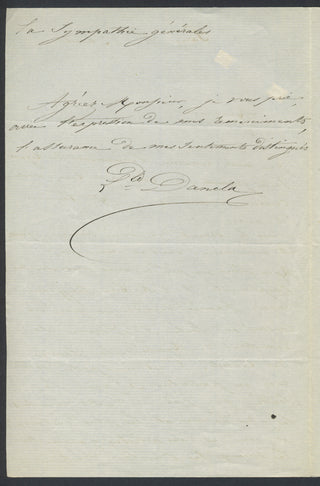 la Sympathie générales
Agréez Monsieur, je vous prie,
avec l'expression de mes remerciments,
l'assurance de mes sentiments distingués
Danela